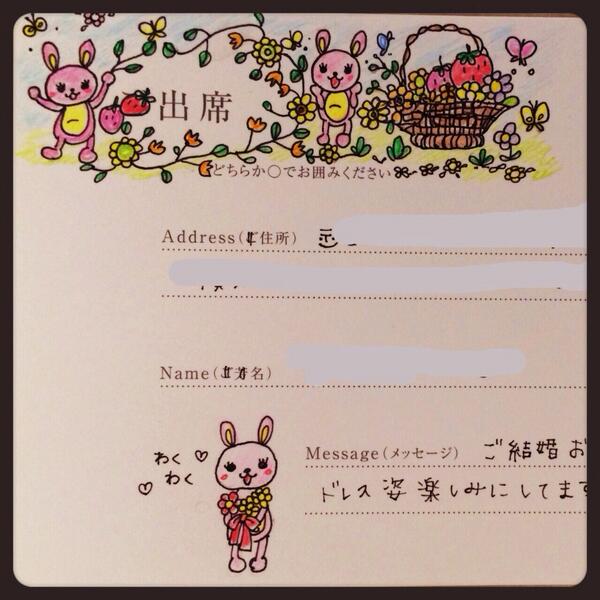 出席
どちらか○でお囲みください
Address(ご住所)
Name(ご芳名)
わく
わく
Message(メッセージ) ご結婚お
ドレス姿楽しみにしてます